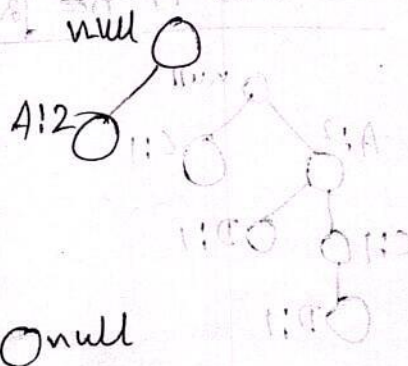 null
A:2
null